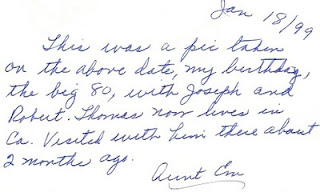 Jan 18/99
This was a pic taken
on the above date, my birthday,
the big 80, with Joseph and
Robert. Thomas now lives in
Ca. Visited with him there about
2 months ago.
Aunt Em